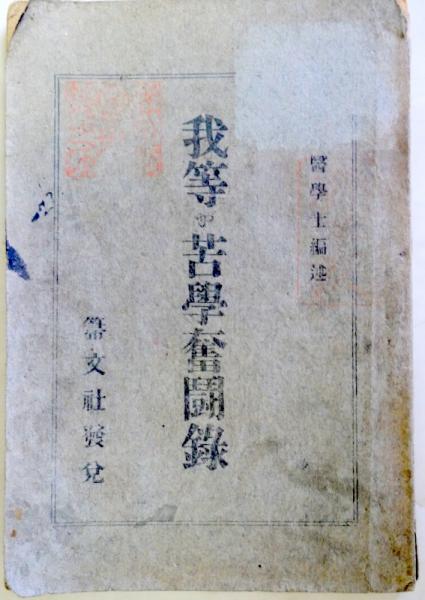 醫學士編述
我等の苦學奮鬪錄
文社發兌